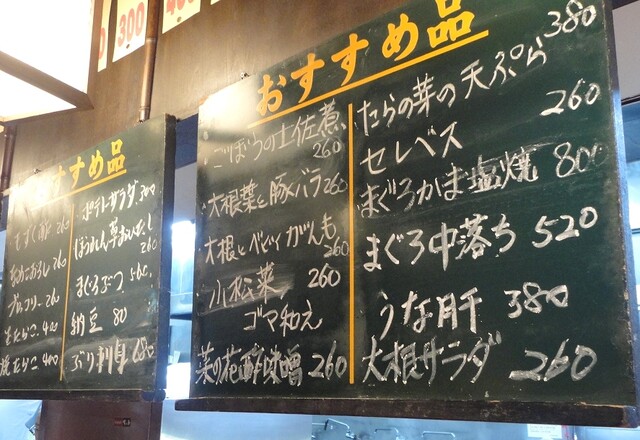 300
おすすめ品
もずく酢 260
なめこおろし 260
ブロッコリー 260
生たらこ 400
焼たらこ 400
ポテトサラダ 300
ほうれん草おひたし
260
まぐろぶつ 560
納豆 80
ぶり刺身 680
おすすめ品
ごぼうの土佐煮
260
大根葉と豚バラ 260
大根とベビィがんも
260
小松菜 260
ゴマ和え
菜の花酢味噌 260
たらの芽の天ぷら 380
セレベス 260
まぐろかま塩焼 800
まぐろ中落ち 520
うな肝 380
大根サラダ 260